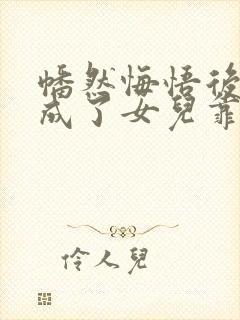 幡然悔悟後
成了女兒靠
伶人兒